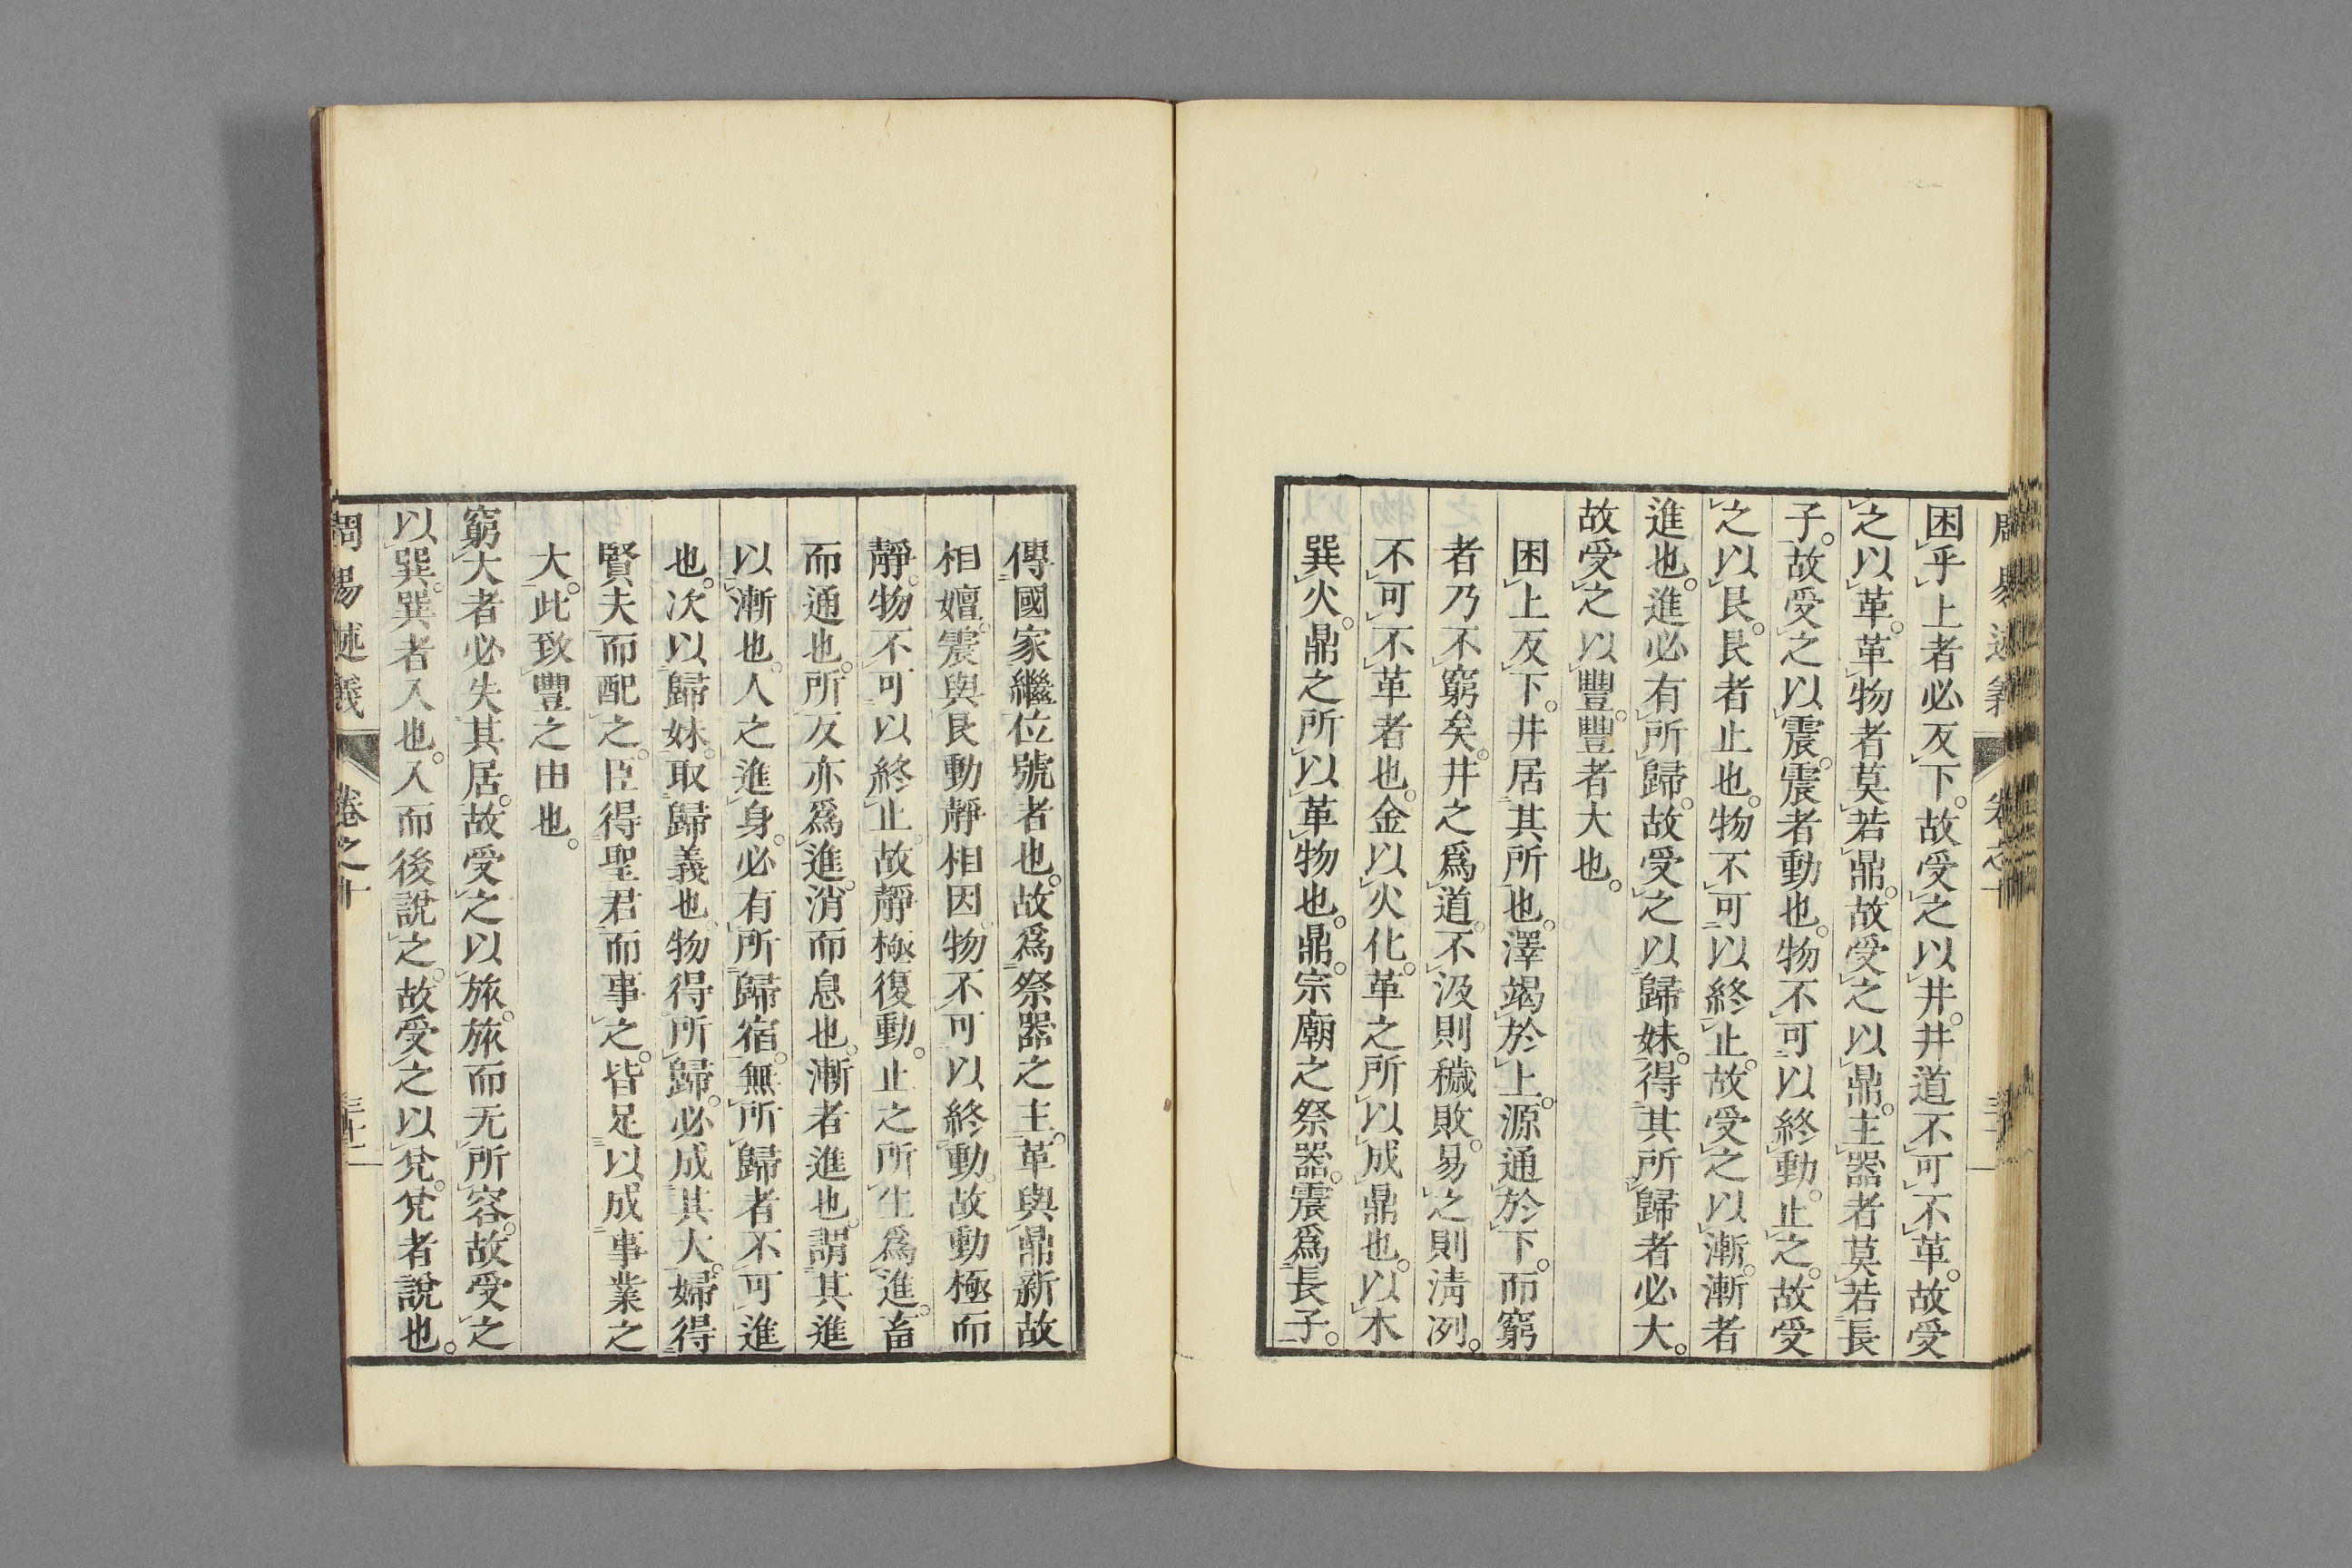 困乎上者必反下。故受之以井。井道不可不革。故受
之以革。革物者莫若鼎。故受之以鼎。主器者莫若長
子。故受之以震。震者動也。物不可以終動。止之。故受
之以艮。艮者止也。物不可以終止。故受之以漸。漸者
進也。進必有所歸。故受之以歸妹。得其所歸者必大。
故受之以豐。豐者大也。
困上反下。井居其所也。澤竭於上。源通於下。而窮
者乃不窮矣。井之爲道。不汲則穢敗。易之則淸冽。
不可不革者也。金以火化。革之所以成鼎也。以木
巽火。鼎之所以革物也。鼎。宗廟之祭器。震爲長子。
傳國家繼位號者也。故爲祭器之主。革與鼎新故
相嬗。震與艮動靜相因。物不可以終動。故動極而
靜。物不可以終止。故靜極復動。止之所生爲進。畜
而通也。所反亦爲進。消而息也。漸者進也。謂其進
以漸也。人之進身。必有所歸宿。無所歸者不可進
也。次以歸妹。取歸義也。物得所歸。必成其大。婦得
賢夫而配之。臣得聖君而事之。皆足以成事業之
大。此致豐之由也。
窮大者必失其居。故受之以旅。旅而无所容。故受之
以巽。巽者入也。入而後說之。故受之以兌。兌者說也。
周易述義 卷之十 三十二